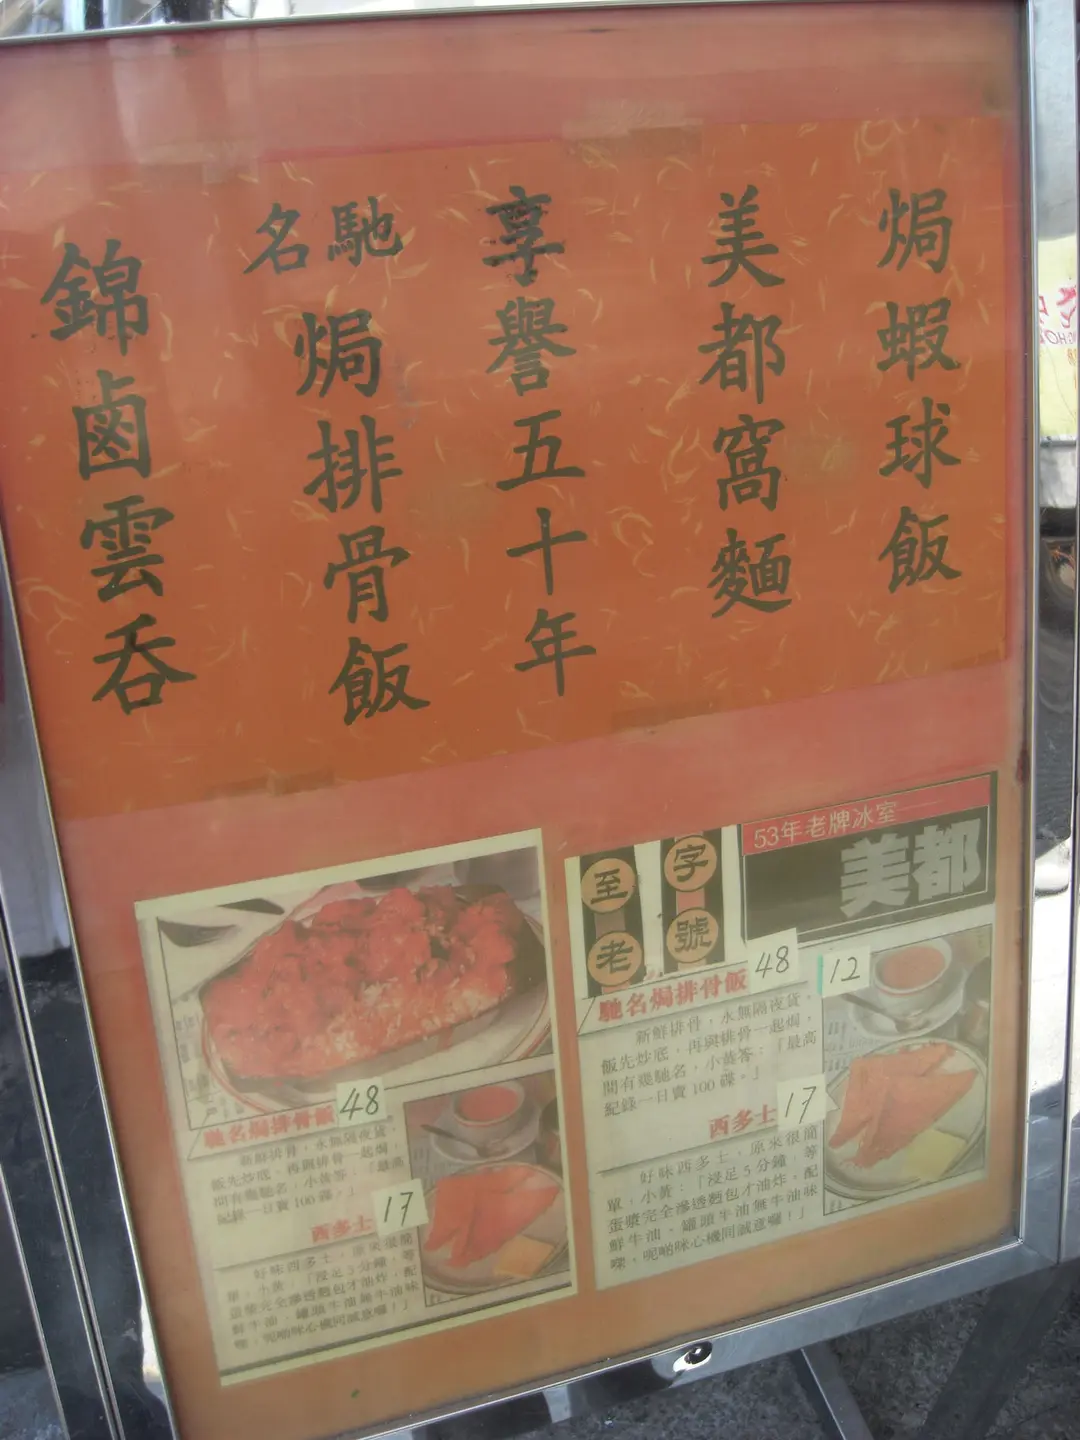 焗蝦球飯
美都窩麵
享譽五十年
馳名焗排骨飯
錦鹵雲吞
48
馳名焗排骨飯
新鮮排骨，永無隔夜貨，
飯先炒底，再與排骨一起焗，
問有幾馳名，小黃答：「最高
紀錄一日賣100碟。」
17
西多士
好味西多士，原來很簡
單，小黃：「浸足5分鐘，等
蛋漿完全滲透麵包才油炸，配
鮮牛油，罐頭牛油無牛油味
㗎，呢啲咪心機同誠意囉！」
53年老牌冰室
美都
至老字號
48
12
馳名焗排骨飯
新鮮排骨，永無隔夜貨，
飯先炒底，再與排骨一起焗，
問有幾馳名，小黃答：「最高
紀錄一日賣100碟。」
17
西多士
好味西多士，原來很簡
單，小黃：「浸足5分鐘，等
蛋漿完全滲透麵包才油炸，配
鮮牛油，罐頭牛油無牛油味
㗎，呢啲咪心機同誠意囉！」